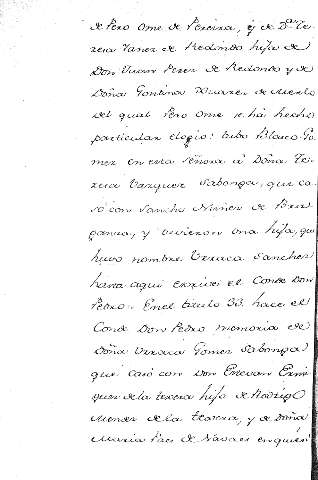 de Pero Ome de Pereira, y de D.ª Te-
resa Yanez de Redondo hija de
Don Juan Perez de Redondo y de
Doña Gontina Suarez de Merlo
del qual Pero Ome se há hecho
particular elogio: tubo Blasco Go-
mez en esta señora á Doña Te-
resa Vazquez Sabonga, que ca-
só con Sancho Nuñez de
y tuvieron una hija, que
huvo nombre Urraca Sanchez
hasta aqui escrive el Conde Don
Pedro. En el titulo 33. hace el
Conde Don Pedro memoria de
Doña Urraca Gomez Sabonga
que casó con Don Estevan Ermi-
guez de la texera hijo de Rodrigo
Mendez de la texera, y de Doña
Maria Paes de Navaes en quien